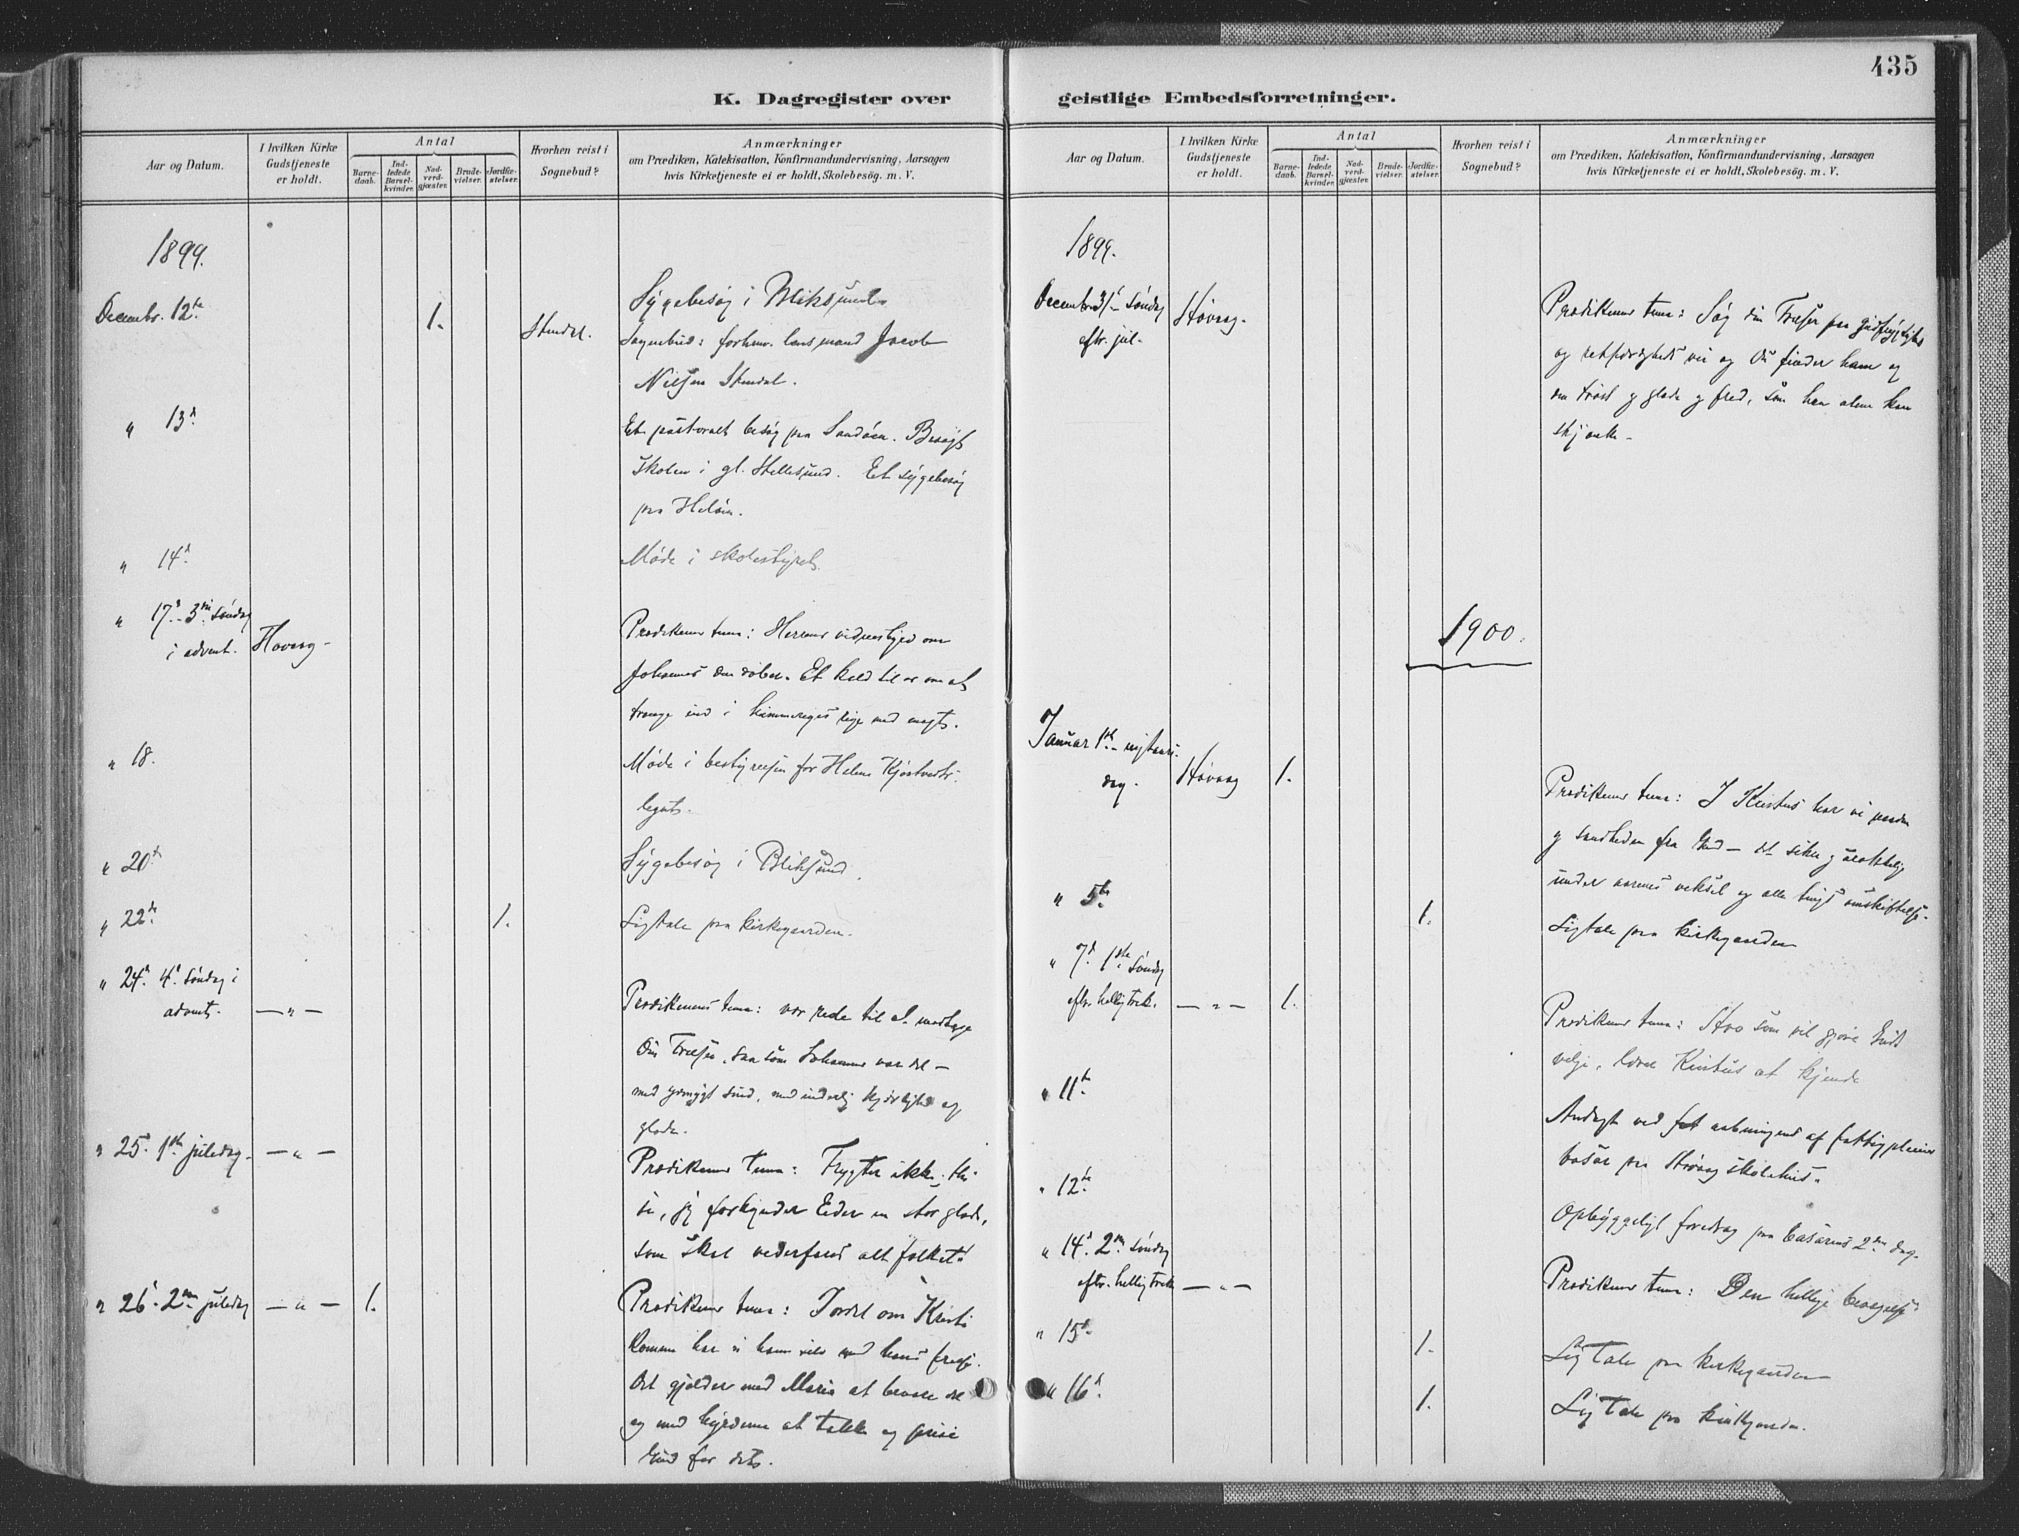 435
K. Dagregister over
geistlige Embedsforretninger.
Aar og Datum.
I hvilken Kirke
Gudstjeneste
er holdt.
Antal
Barne-
daab.
Ind-
ledede
Barsel-
kvinder.
Nad-
verd-
gjæster.
Brude-
vielser.
Jordfæ-
stelser.
Hvorhen reist i
Sognebud?
Anmærkninger
om Prædiken, Katekisation, Konfirmandundervisning, Aarsagen
hvis Kirketjeneste ei er holdt, Skolebesög. m. V.
1899.
Decembr. 12te
1.
Stendal.
Sygebesøg i
Sognebud: forhenv. lensmand Jacob
Nilsen Stendal.
" 13d
Et pastoralt besøg paa Sandøen. Besøgt
Skolen i gl. Hellesund. Et sygebesøg
paa Heløen.
" 14d
Møde i skolestyret.
" 17d 3die søndag
i advent.
Høvaag -
Prædikenens tema: Herrens vidnesbyrd om
Johannes den døber. Et kald til os om at
trænge ind i himmeriges rige med magt.
" 18.
Møde i bestyrelsen for Helene Kjøstvedts
legat.
" 20de
Sygebesøg i Bliksund.
" 22de
1.
Ligtale paa kirkegaarden.
" 24d. 4d søndag i
advent.
— " —
Prædikenens tema: vær rede til at modtage
Din Frelser, saa som Johannes var det -
med ydmygt sind, med inderlig kjærlighed og
glæde.
" 25. 1ste juledag.
— " —
Prædikenens tema: Frygter ikke, thi
se, jeg forkynder Eder en stor glæde,
som skal vederfares alt folket.
" 26. 2den juledag
— " —
1.
Prædikenens tema: I ordet om Kristi
komme har vi ham selv med hans frelse.
Det gjælder med Maria at bevare det
og med hyrderne at takke og prise
Gud for det.
Aar og Datum.
I hvilken Kirke
Gudstjeneste
er holdt.
Antal
Barne-
daab.
Ind-
ledede
Barsel-
kvinder.
Nad-
verd-
gjæster.
Brude-
vielser.
Jordfæ-
stelser.
Hvorhen reist i
Sognebud?
Anmærkninger
om Prædiken, Katekisation, Konfirmandundervisning, Aarsagen
hvis Kirketjeneste ei er holdt, Skolebesög. m. V.
1899.
Decembr 31. søndag
eftr. jul.
Høvaag.
Prædikenens tema: Søg din Frelser paa gudfrygtigheds
og retfærdigheds vei og du finder ham og
den trøst og glæde og fred, som han alene kan
skjænke.
1900.
Januar 1ste nytaars-
dag.
Høvaag
1.
Prædikenens tema: I Kristus har vi naaden
og sandheden fra Gud - det sikre og
under aarenes veksel og alle tings omskiftelse.
" 5te
1.
Ligtale paa kirkegaarden
" 7d 1ste søndag
eftr. helligtrek.
— " —
1.
Prædikenens tema: Hvo som vil gjøre Guds
vilje, lærer Kristus at kjende
" 11te
Andagt ved aabningen af fattigpleiens
basar paa Høvaag skolehus.
" 12te
Opbyggeligt foredrag paa basarens 2den dag.
" 14d 2den søndag
eftr. helligtrek.
— " —
Prædikenens tema: Den hellige
" 15d
1.
Ligtale paa kirkegaarden
" 16d
1.
Ligtale paa kirkegaarden.